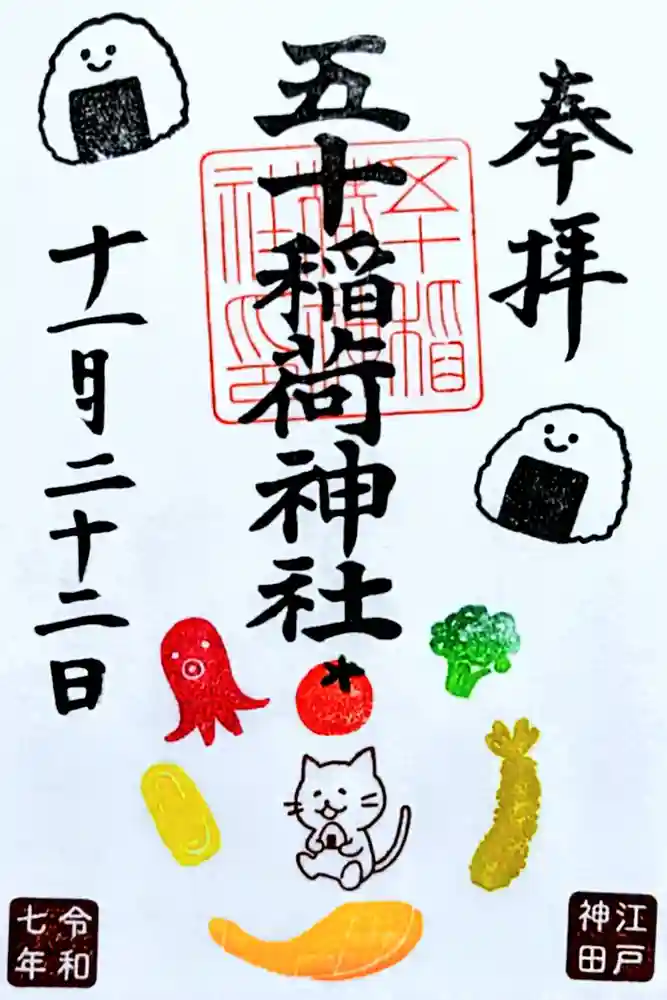 奉拝
五十稲荷神社
五十稲荷神社印
十一月二十二日
江戸
神田
令和
七年